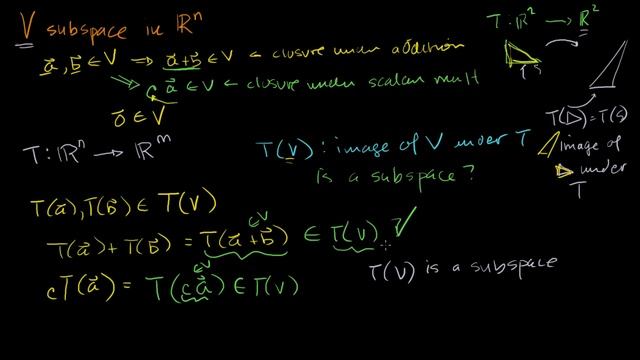 V subspace in ℝⁿ
a⃗, b⃗ ∈ V ⟹ a⃗+b⃗ ∈ V ← closure under addition
⟹ c a⃗ ∈ V ← closure under scalar mult
0⃗ ∈ V
T: ℝ² → ℝ²
T(▷) = T(S)
image of ▷ under T
T: ℝⁿ → ℝᵐ
T(V): image of V under T
is a subspace?
T(a⃗), T(b⃗) ∈ T(V)
∈V
T(a⃗) + T(b⃗) = T(a⃗+b⃗) ∈ T(V) ? ✓
∈V
cT(a⃗) = T(ca⃗) ∈ T(V)
T(V) is a subspace